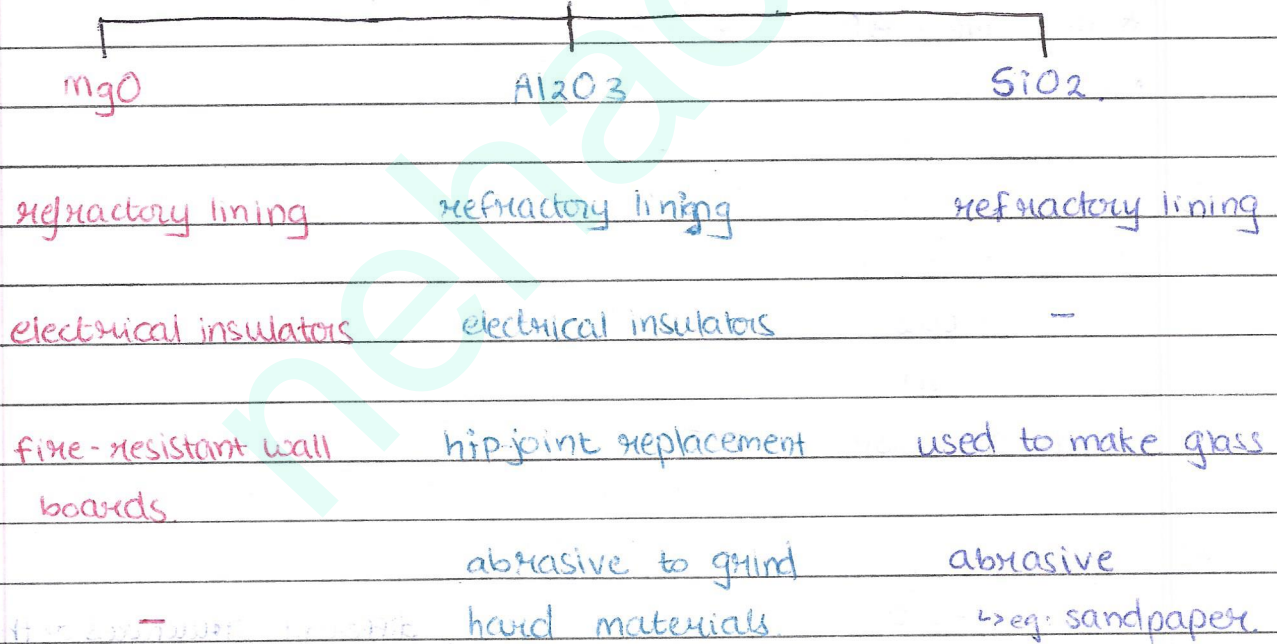 MgO Al2O3 SiO2.
refractory lining refractory lining refractory lining
electrical insulators electrical insulators -
fire-resistant wall hip-joint replacement used to make glass
boards.
abrasive to grind abrasive
- hard materials. ↳ eg: sandpaper.
neha